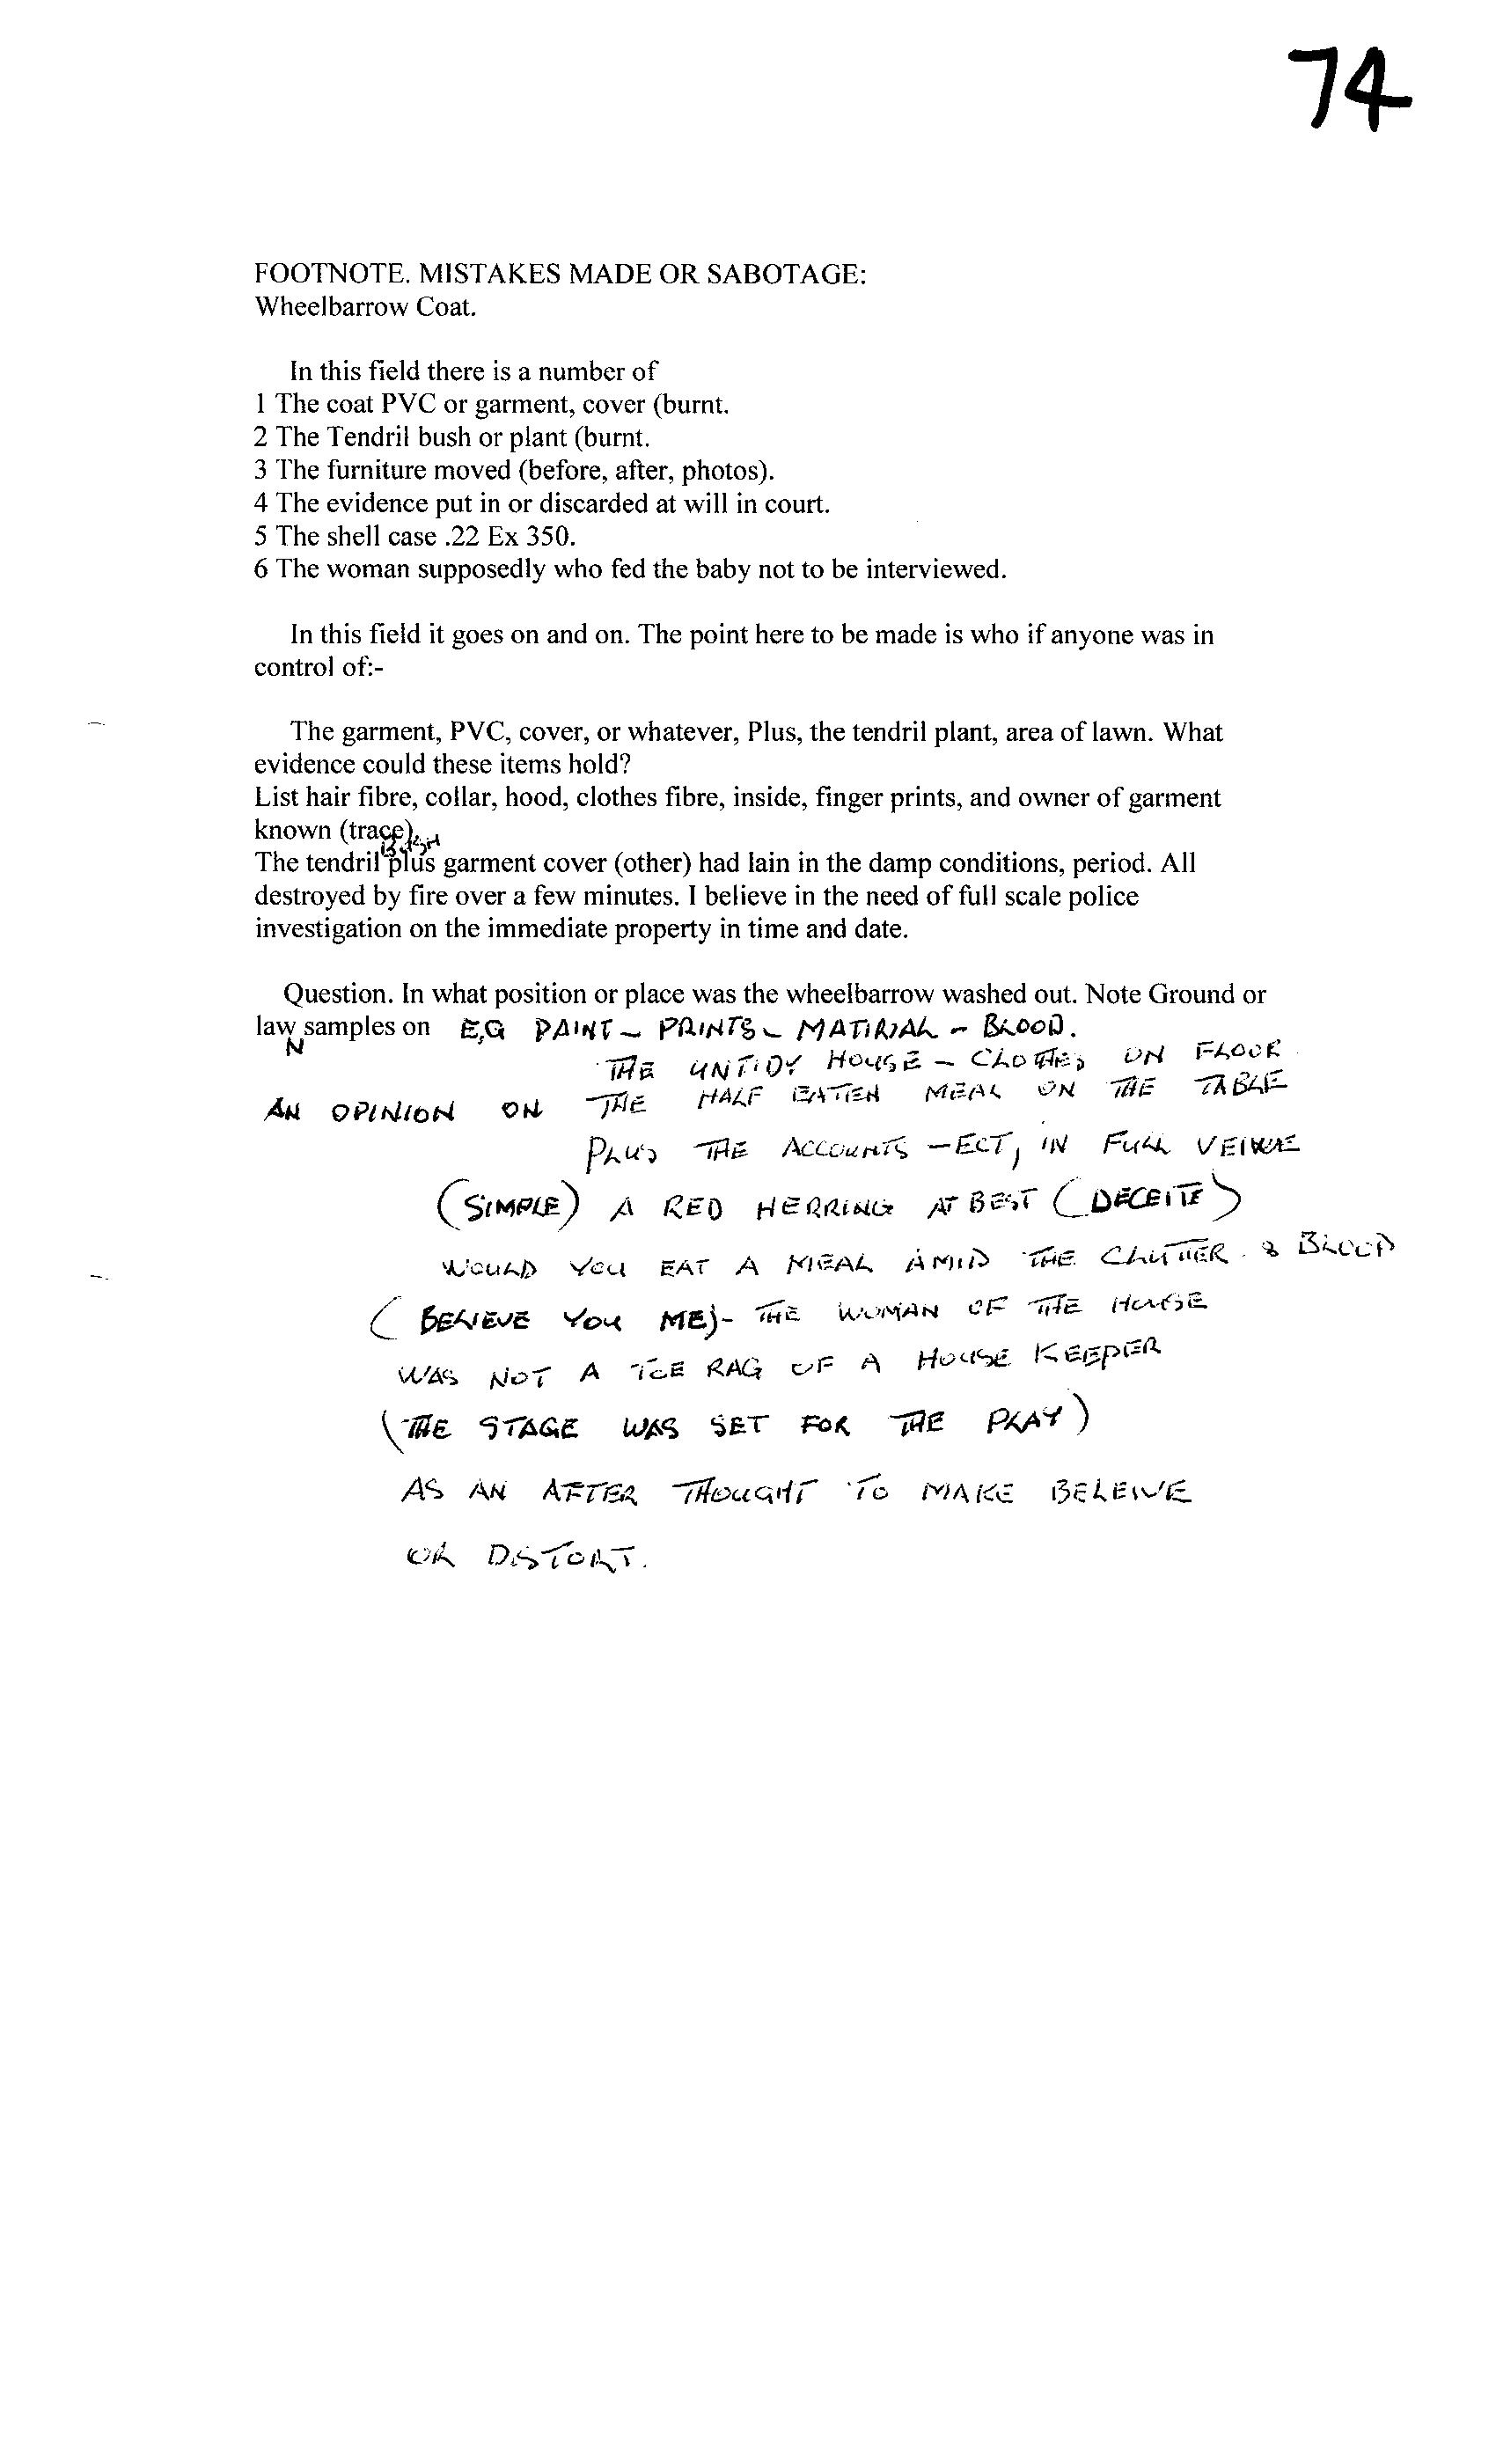 74
FOOTNOTE. MISTAKES MADE OR SABOTAGE:
Wheelbarrow Coat.
In this field there is a number of
1 The coat PVC or garment, cover (burnt.
2 The Tendril bush or plant (burnt.
3 The furniture moved (before, after, photos).
4 The evidence put in or discarded at will in court.
5 The shell case .22 Ex 350.
6 The woman supposedly who fed the baby not to be interviewed.
In this field it goes on and on. The point here to be made is who if anyone was in
control of:-
The garment, PVC, cover, or whatever, Plus, the tendril plant, area of lawn. What
evidence could these items hold?
List hair fibre, collar, hood, clothes fibre, inside, finger prints, and owner of garment
known (trace).
BUSH
The tendril plus garment cover (other) had lain in the damp conditions, period. All
destroyed by fire over a few minutes. I believe in the need of full scale police
investigation on the immediate property in time and date.
Question. In what position or place was the wheelbarrow washed out. Note Ground or
law samples on E,G PAINT - PRINTS - MATIRIAL - BLOOD.
N
THE UNTIDY HOUSE - CLOTHES ON FLOOR
AN OPINION ON THE HALF EATEN MEAL ON THE TABLE
PLUS THE ACCOUNTS - ECT, IN FULL
(SIMPLE) A RED HERRING AT BEST (DECEITE)
WOULD YOU EAT A MEAL AMID THE CLUTTER & BLOOD
(BELIEVE YOU ME) - THE WOMAN OF THE HOUSE
WAS NOT A TOE RAG OF A HOUSE KEEPER
(THE STAGE WAS SET FOR THE PLAY)
AS AN AFTER THOUGHT TO MAKE BELEIVE
OR DISTORT.